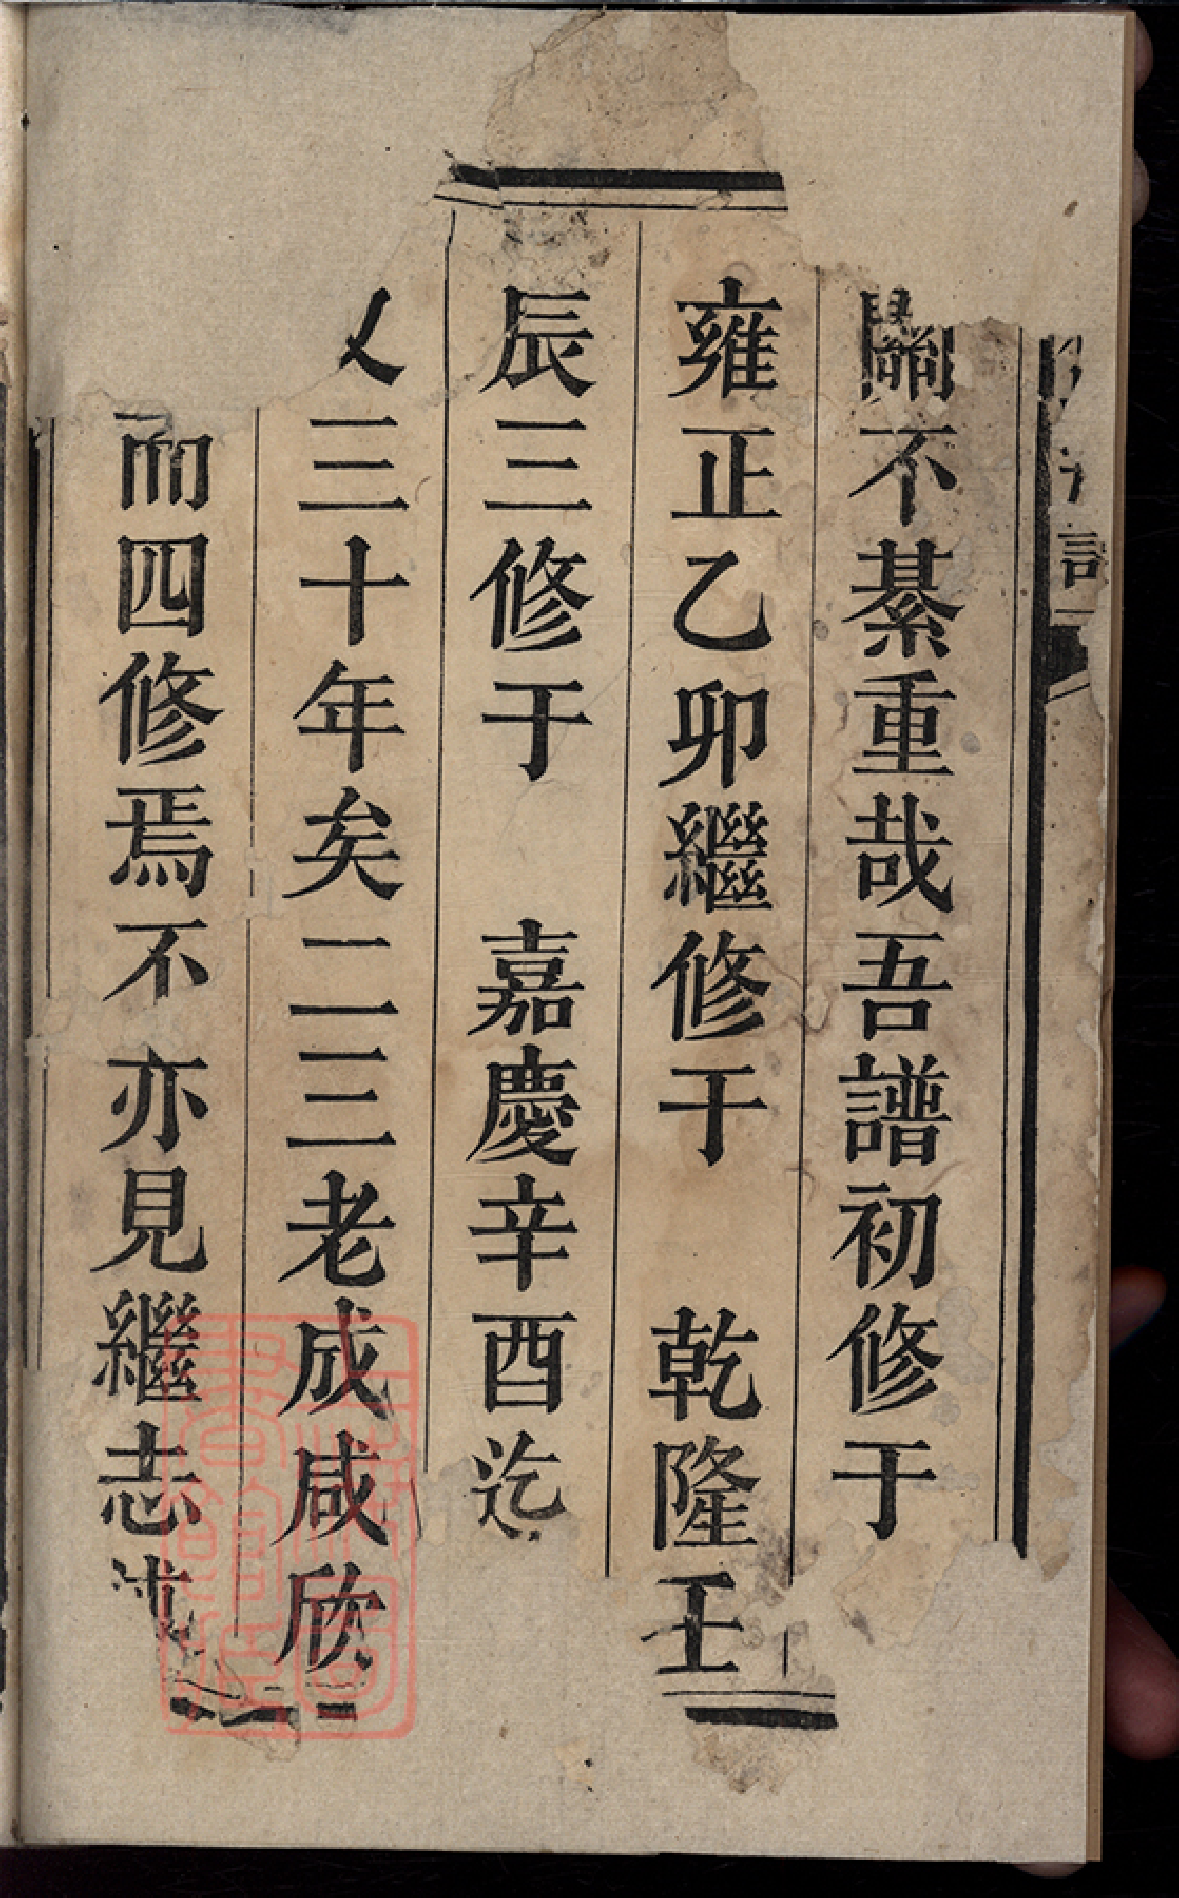 關不綦重哉吾譜初修于
雍正乙卯繼修于 乾隆壬
辰三修于 嘉慶辛酉迄
又三十年矣一二三老成咸欣
而四修焉不亦見繼志